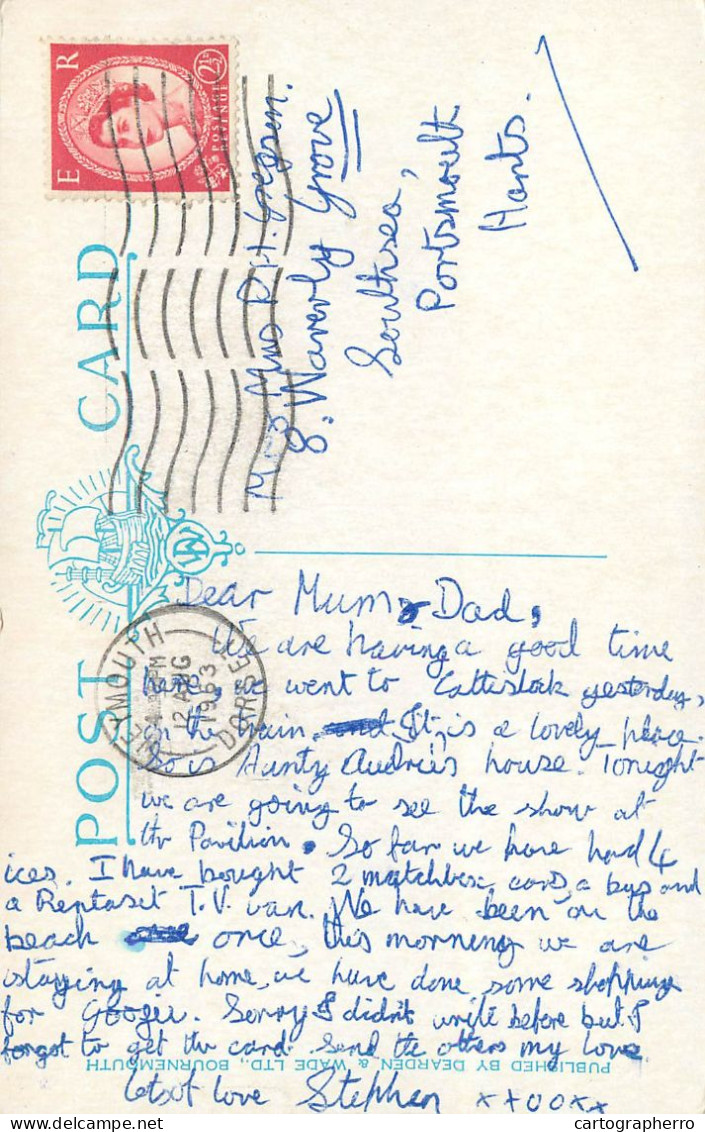 POST CARD
E R
2½D
POSTAGE
REVENUE
WEYMOUTH
4 PM
12 AUG
1963
DORSET
Mr & Mrs R.H. Gregson.
8. Waverly Grove
Southsea,
Portsmouth
Hants.
Dear Mum & Dad,
We are having a good time
here, we went to Cattistock yesterday,
on the train. It is a lovely place.
So is Aunty Audrie's house. Tonight
we are going to see the show at
the Pavilion. So far we have had 4
ices. I have bought 2 matchbox cars, a bus and
a Rentaset T.V. van. We have been on the
beach once, this morning we are
staying at home, we have done some shopping
for Googie. Sorry I didn't write before but I
forgot to get the card. Send the others my love
lotsof love Stephen xxooxx
PUBLISHED BY DEARDEN & WADE LTD., BOURNEMOUTH
cartographerro